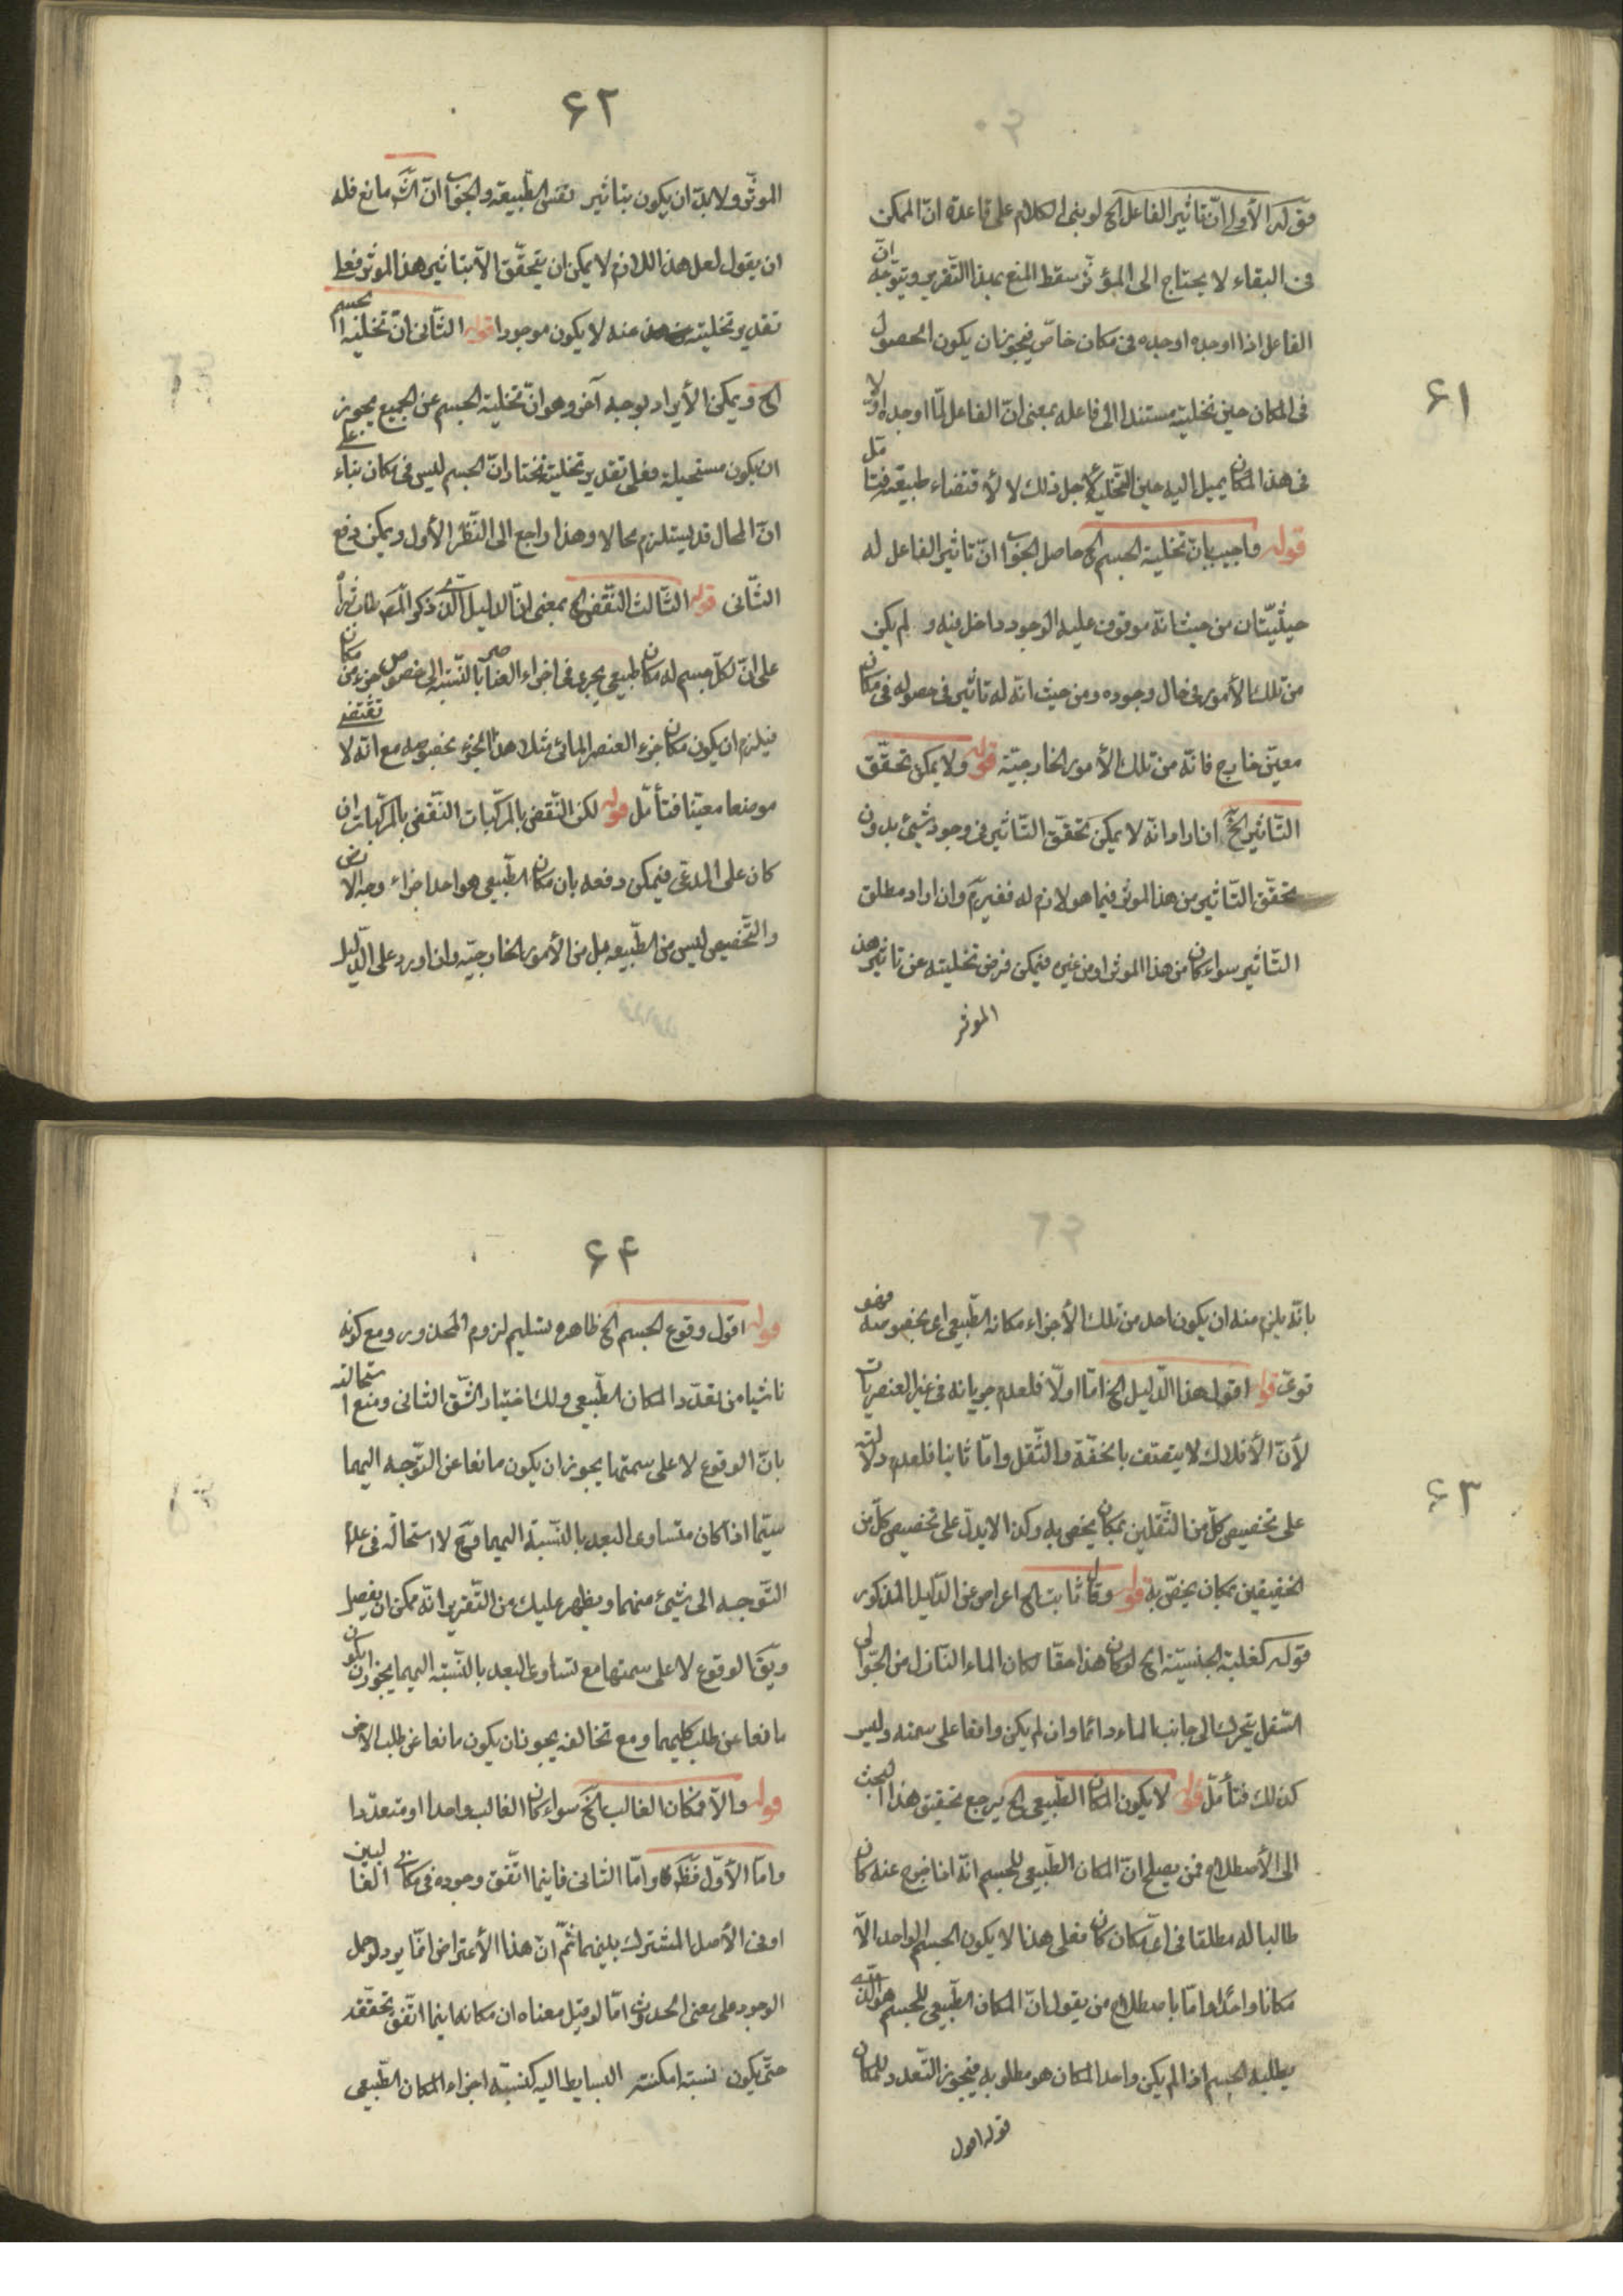 ۶۱
قوله الأولى انّ تاثير الفاعل الخ لو بنى الكلام على قاعدة انّ الممكن
فى البقاء لا يحتاج الى المؤثّر سقط المنع بهذا التّقرير ويتوجّه انّ
الفاعل اذا اوجده اوجده فى مكان خاصّ فيجوز ان يكون الحصول
فى المكان حين تخليته مستندا الى فاعله بمعنى انّ الفاعل لمّا اوجده اوّلا
فى هذا المكان يميل اليه حين التّخلية لأجل ذلك لا لأقتضاء طبيعته فتامّل
قوله واجيب بانّ تخلية الجسم الخ حاصل الجوّاب انّ تاثير الفاعل له
حيثيّتان من حيث انّه موقوف عليه الوجود داخل فيه و لم يكن
من تلك الأمور فى حال وجوده ومن حيث انّه له تاثير فى حصوله فى مكان
معيّن خارج فانّه من تلك الأمور الخارجيّة قوله ولا يمكن تحقّق
التّاثير الخ ان اراد انّه لا يمكن تحقّق التّاثير فى وجود شيئ بدون
تحقّق التّاثير من هذا الموثر فيما هو لازم له فغير مّ وان اراد مطلق
التّاثير سواء كان من هذا الموثر او من غيره فيمكن فرض تخليته عن تاثير هذا
الموثر
۶۲
الموثّر ولا بدّ ان يكون بتاثير نفس الطّبيعة والجوّاب انّ الشّ مانع فله
ان يقول لعل هذا اللازم لا يمكن ان يتحقّق الاّ بتاثير هذا الموثر فعلى
تقدير تخليته عنه لا يكون موجودا قوله الثّانى انّ تخلية الجسم
الخ ويمكن الأيراد بوجه آخر وهو انّ تخلية الجسم عن الجميع يجوز
ان يكون مستحيلة فعلى تقدير تخليته نختار انّ الجسم ليس فى مكان بناء على
انّ المحال قد يستلزم محالا وهذا راجع الى النّظر الأول ويمكن دفع
الثّانى قوله الثّالث النّقض الخ بمعنى انّ الدليل الّذى ذكره المّصـ
على انّ لكلّ جسم له مكان طبيعى يجرى فى اجزاء العناصر بالنّسبة الى خصوص جزء من مكان
فيلزم ان يكون مكان جزء العنصر المائى مثلا هذا الجزء بخصوصه مع انّه لا تقتضى
موضعا معيّنا فتأمّل قوله لكن النّقض بالمركّبات النّقض بالمركّبات ان
كان على المدعى فيمكن دفعه بان مكان الطّبيعى هو احد اجزاء وجه الارض
والتّخصيص ليس من الطّبيعه بل من الأمور الخارجيّه وان اورد على الدّليل
۶۳
بانّه يلزم منه ان يكون احد من تلك الأجزاء مكانه الطّبيعى اى بخصوصه فهو
قوىّ قوله اقول هذا الدّليل الخ امّا اولّا فلعدم جريانه فى غير العنصريات
لأنّ الأفلاك لا يتّصف بالخفّة والثّقل وامّا ثانيا فلعدم دلالته
على تخصيص كلّ من الثّقلين بمكان يخصى به وكذا لا يدلّ على تخصيص كلّ من
الخفيفين بمكان يخصّ به قوله وقال ثابت الخ اعراض عن الدّليل المذكور
قوله كغلبة الجنسيّة الخ لو كان هذا حقّا لكان الماء النّازل من الجّو الى
السّفل يتحرك الى جانب الماء دائما وان لم يكن واقعا على سمته وليس
كذلك فتأمّل قوله لا يكون المكان الطّبيعى الخ يرجع تحقيق هذا البحث
الى الأصطلاح فمن يصلح انّ المكان الطّبيعى للجسم انّه اذا خرج عنه كان
طالبا له مطلقا فى اىّ مكان كان فعلى هذا لا يكون الجسم الواحد الاّ
مكانا واحدا وامّا باصطلاح من يقول انّ المكان الطّبيعى للجسم هو الّذى
يطلبه الجسم اذا لم يكن واحد المكان هو مطلوبه فيجوز التّعدد للمكان
قوله اقول
۶۴
قوله اقول وقوع الجسم الخ ظاهره تسليم لزوم المحذور ومع كونه
ناشيا من تعدّد المكان الطّبيعى ولك اختيار الشّق الثانى ومنع استحالته
بانّ الوقوع لا على سمتهما يجوز ان يكون مانعا عن التّوجه اليهما
سيّما اذا كان متساوى البعد بالنّسبة اليهما فحّ لا استحالة فى عدم
التّوجه الى شيئ منهما ويظهر عليك من التّقرير انّه ممكن ان يفصل
ويقّ الوقوع لا على سمتهما مع تساوى البعد بالنّسبة اليهما يجوز ان يكون
مانعا عن طلب كليهما ومع تخالفه يجوز ان يكون مانعا عن طلب الاخر
قوله والاّ فمكان الغالب الخ سواء كان الغالب واحدا او متعدّدا
وامّا الأوّل فظّ وامّا الثانى فاينما اتّفق وجوده فى مكانى الغالبين
او فى الأصل المشترك بينهما ثمّ انّ هذا الأعتراض انمّا يرد لو حمل
الوجود على معنى الحدوث امّا لو قيل معناه ان مكانه اينما اتّفق تحقّقه
حتّى يكون نسبته امكنته البسايط اليه كنسبة اجزاء المكان الطّبيعى